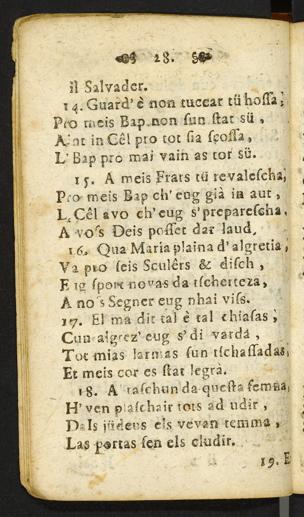 28.
il Salvader.
14. Guard' è non tuccar tü hossa;
Pro meis Bap non sun stat sü,
Aint in Cêl pro tot sia scossa,
L' Bap pro mai vain as tor sü.
15. A meis Frats tü revalescha,
Pro meis Bap ch' eug già in aut,
L Cêl avo ch' eug s' preparescha.
A vo's Deis posset dar laud,
16. Qua Maria plaina d' algretia,
Va pro seis Sculêrs & disch,
Eug sport novas da tscherteza,
A no s Segner eug nhai viss.
17. El ma dit tal è tal chiasas;
Cun algrez' eug s' di varda,
Tot mias larmas sun tschassadas,
Et meis cor es stat legrà.
18. A taschun da questa femna,
H' ven plaschair tots ad udir,
Dals jüdeus els vevan temma,
Las portas sen els cludir.
19. E